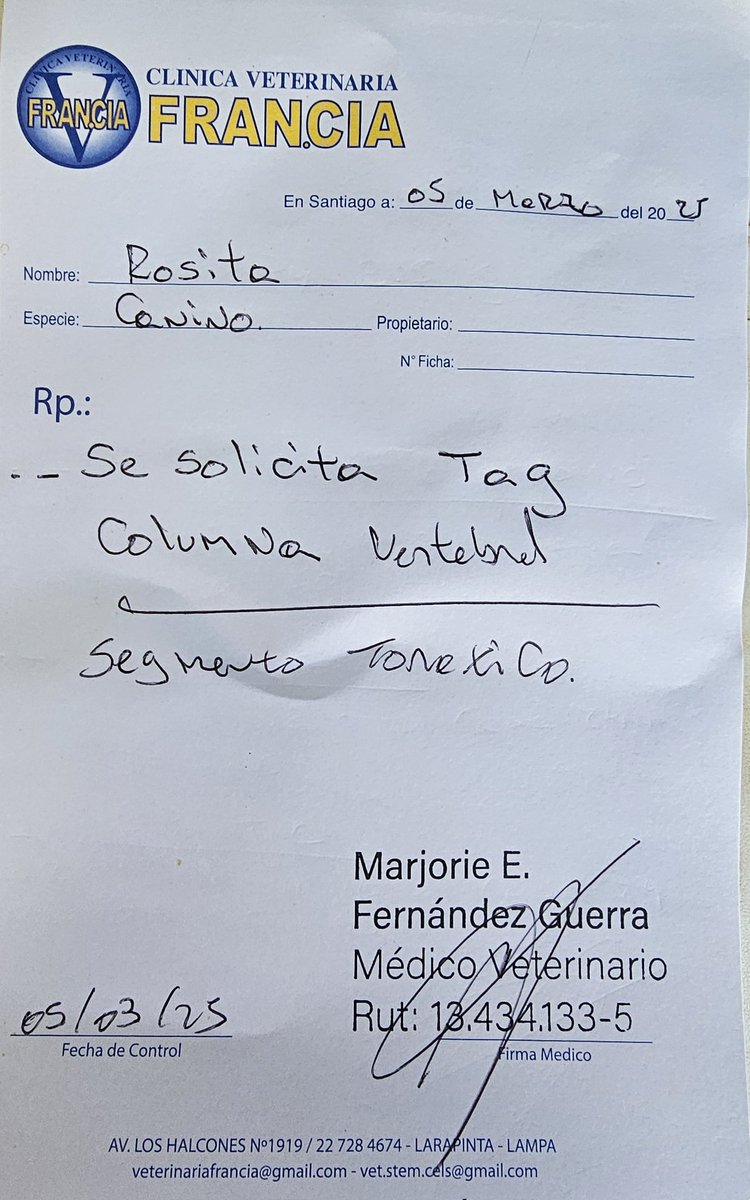 CLINICA VETERINARIA
V
FRAN.CIA
CLINICA VETERINARIA
FRAN.CIA
En Santiago a: 05 de Marzo del 20 25
Nombre: Rosita
Especie: Canino. Propietario:
N° Ficha:
Rp.:
-- Se solicita Tag
Columna Vertebral
Segmento Toraxico.
Marjorie E.
Fernández Guerra
Médico Veterinario
Rut: 13.434.133-5
05/03/25
Fecha de Control
Firma Medico
AV. LOS HALCONES Nº1919 / 22 728 4674 - LARAPINTA - LAMPA
veterinariafrancia@gmail.com - vet.stem.cels@gmail.com